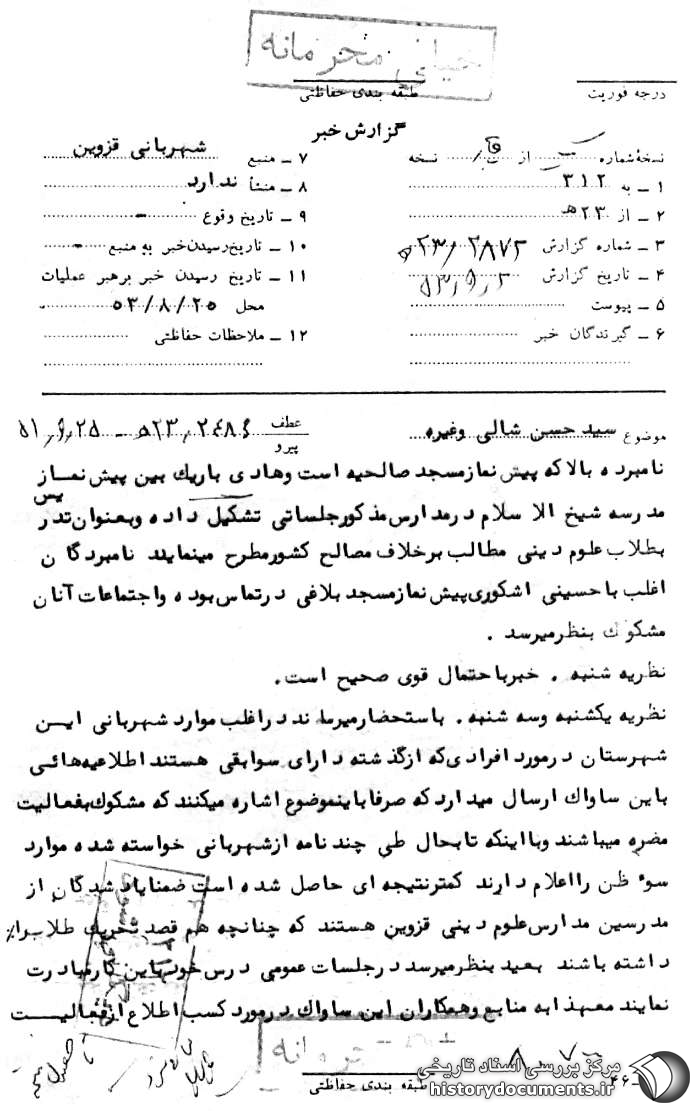 خیلی محرمانه
درجه فوریت
طبقه بندی حفاظتی
گزارش خبر
نسخهٔ شماره از نسخه
۱ ــ به ۳۱۲
۲ ــ از ۲۳ هـ
۳ ــ شماره گزارش ۲۳/۲۸۷۲هـ
۴ ــ تاریخ گزارش ۵۳٫۹٫۲
۵ ــ پیوست
۶ ــ گیرندگان خبر
۷ ــ منبع شهربانی قزوین
۸ ــ منشأ ندارد
۹ ــ تاریخ وقوع -
۱۰ ــ تاریخ رسیدن خبر به منبع -
۱۱ ــ تاریخ رسیدن خبر برهبر عملیات
محل ۵۳/۸/۲۵
۱۲ ــ ملاحظات حفاظتی
موضوع سید حسن شالی وغیره
عطف
پیرو
نامبرده بالاکه پیش نمازمسجد صالحیه است وهادی باریک بین پیش نماز
مدرسه شیخ الاسلام درمدارس مذکورجلساتی تشکیل داده وبعنوان تدریس
بطلاب علوم دینی مطالب برخلاف مصالح کشورمطرح مینمایند نامبردگان
اغلب باحسینی اشکوری پیش نمازمسجد بلاغی درتماس بوده واجتماعات آنان
مشکوک بنظرمیرسد .
نظریه شنبه . خبرباحتمال قوی صحیح است.
نظریه یکشنبه وسه شنبه . باستحضارمیرساند دراغلب موارد شهربانی این
شهرستان درمورد افرادی که ازگذشته دارای سوابقی هستند اطلاعیه هائی
باین ساواک ارسال میدارد که صرفا باینموضوع اشاره میکنند که مشکوک بفعالیت
مضره میباشند وبااینکه تابحال طی چند نامه ازشهربانی خواسته شده موارد
سوء ظن رااعلام دارند کمترنتیجه ای حاصل شده است ضمنا یادشدگان از
مدرسین مدارس علوم دینی قزوین هستند که چنانچه هم قصد تحریک طلاب را
داشته باشند بعید بنظرمیرسد درجلسات عمومی درس خود باین کارمبادرت
نمایند معهذا به منابع وهمکاران این ساواک درمورد کسب اطلاع ازفعالیت
محرمانه
طبقه بندی حفاظتی
۴۶ ــ
مرکز بررسی اسناد تاریخی
historydocuments.ir